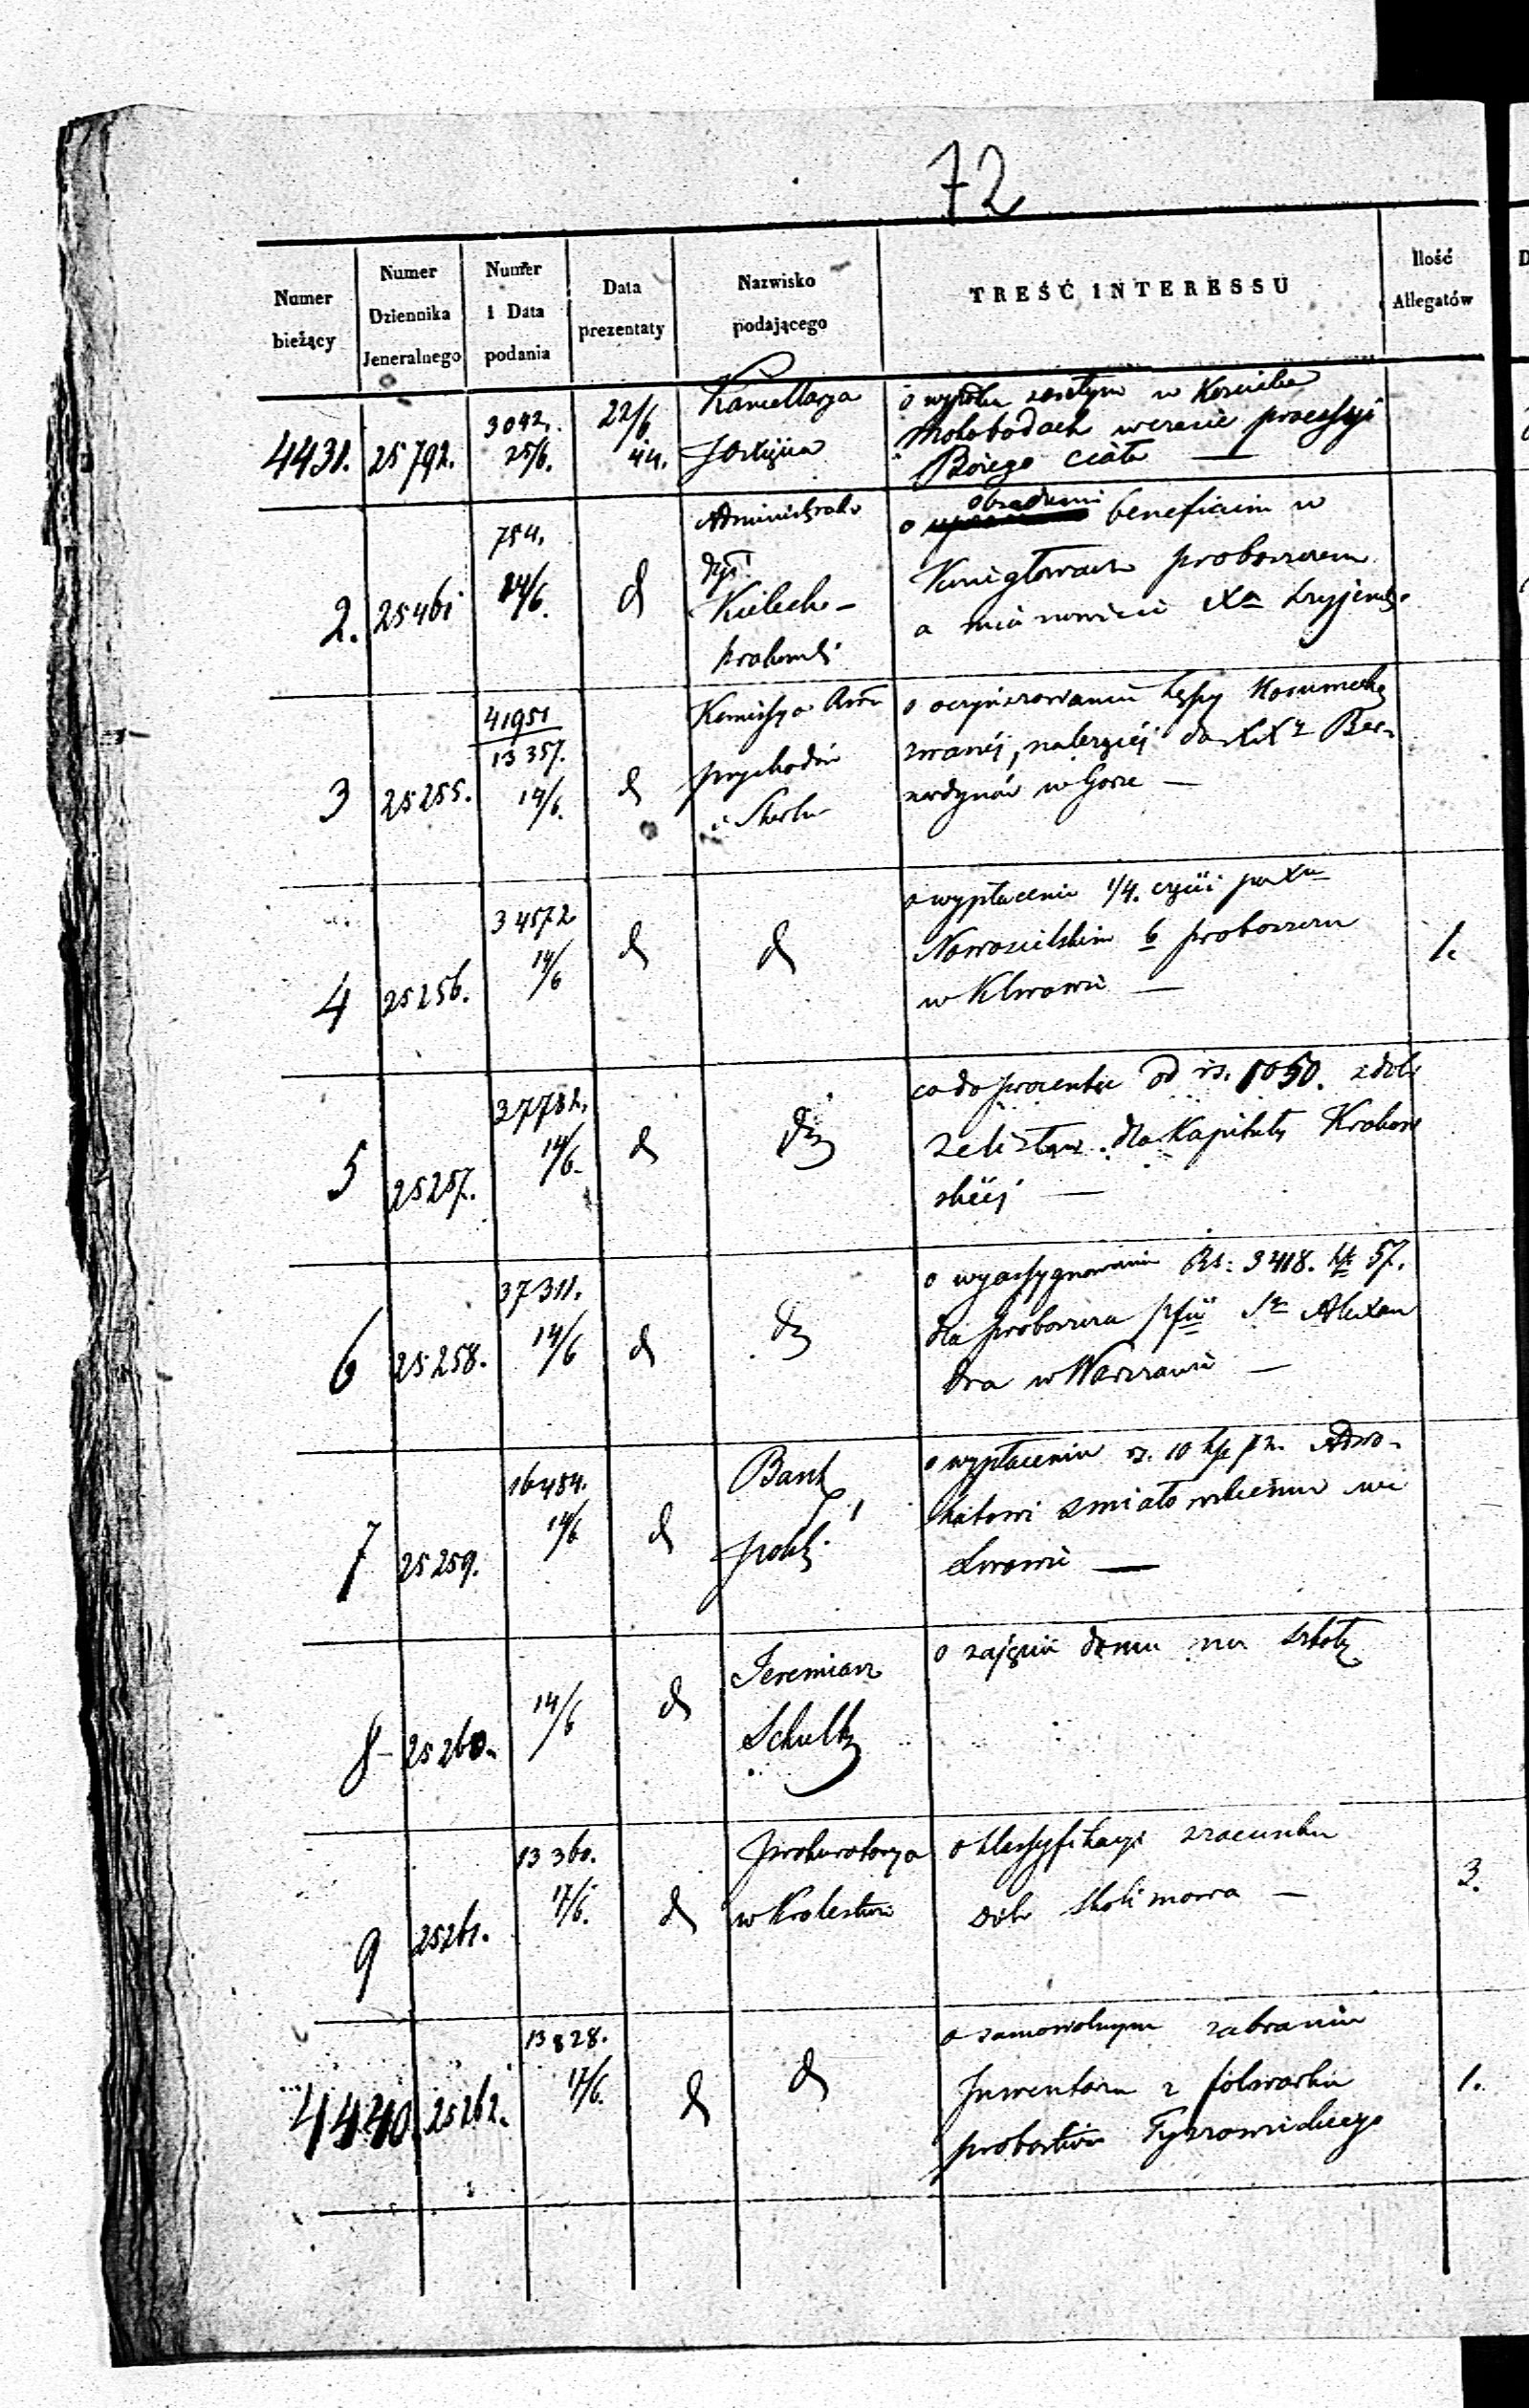 72
Numer bieżący
Numer Dziennika Jeneralnego
Numer i Data podania
Data prezentaty
Nazwisko podającego
TREŚĆ INTERESSU
Ilość Allegatów
4431. 25792. 3092. 25/6. 22/6 44. Kancellarya o w Kosciele
w czasie processyi
Bożego ciała —
2. 25461 754. 24/6. d Administrator
Kielecko-
o obsadzeniu beneficium w
proboszczem
a mianowicie Xa
3 25255. 41951 13357. 14/6. d Kommissya
przychodów
i Skarbu
o oczynszowaniu kępy
zwanéj, należącéj do XXż Ber-
nardynów w Gorze —
4 25256. 34572 14/6 d d o wypłacenie 1/4. części po Xu
Nowosielskim b proboszczu
w Klwowie — 1.
5 25257. 37782. 14/6. d do co do procentu od rs. 1050. z dóbr
Zelisław dla Kapituły Krakow
skiéj —
6 25258. 37311. 14/6 d do o wyassygnowanie Rs: 3418. kp 57.
dla proboszcza pfii Sgo Alexan
dra w Warszawie —
7 25259. 16484. 14/6 d Bank
Polski
o wypłacenie rs. 10 kp 72. Adwo-
katowi Zmiałowskiemu we
Lwowie —
8 25260. 14/6 d Jeremiasz
Schultz
o zajęcie domu na szkołę
9 25261. 13360. 17/6. d Prokuratorya
w Krolestwie
o klassyfikacyi szacunku
dóbr Skolimowa — 3.
4440 25262. 13828. 17/6. d d o samowolnym zabraniu
Inwentarza z folwarku
probostwa Tyszowieckiego 1.